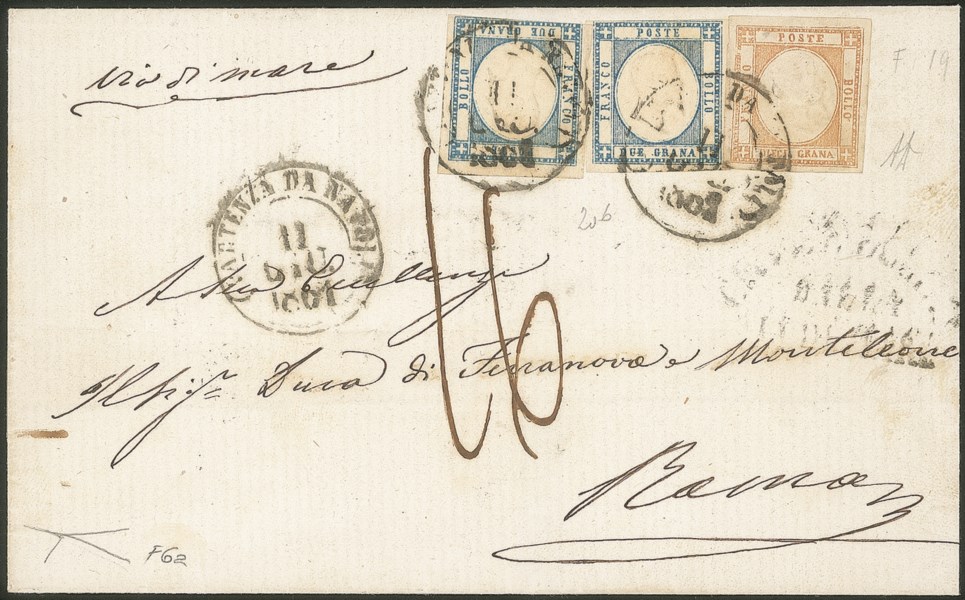 via di mare
BOLLO
DUE GRANA
FRANCO
POSTE
FRANCO
BOLLO
DUE GRANA
POSTE
BOLLO
GRANA
11
1861
DA
11
1861
F 19
AA
206
PARTENZA DA NAPOLI
11
DIC.
1861
A Sua Eccellenza
Il Sigr Duca di Terranova e Monteleone
16
Roma
F62